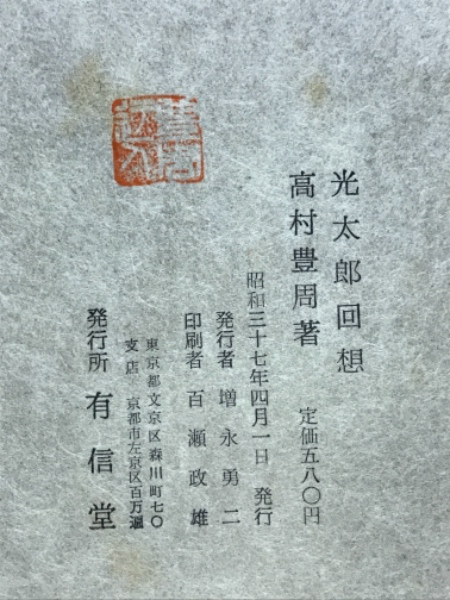 光太郎回想
高村豊周著
定価五八〇円
昭和三十七年四月一日 発行
発行者 増永勇二
印刷者 百瀬政雄
東京都文京区森川町七〇
支店 京都市左京区百万遍
発行所 有信堂